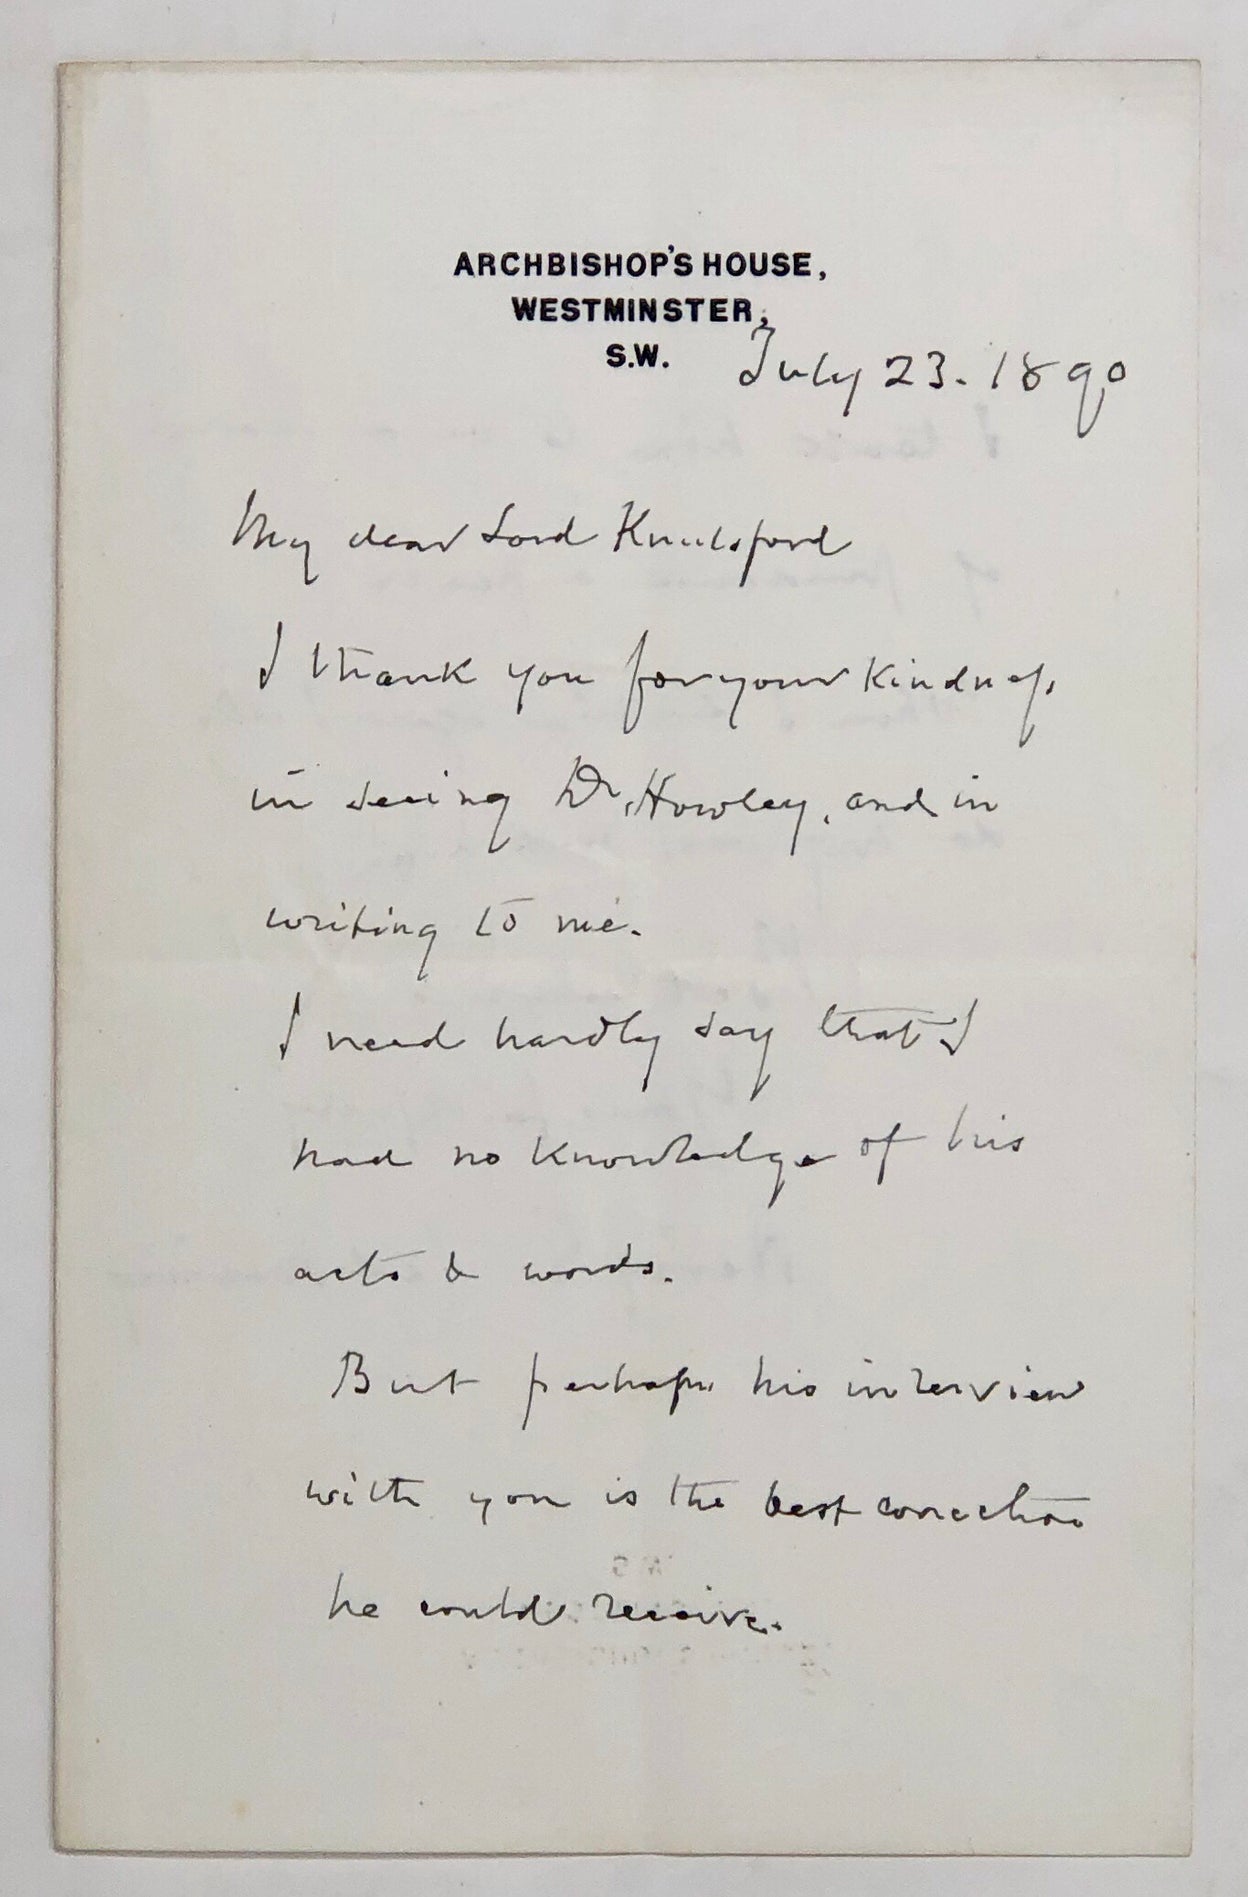 ARCHBISHOP'S HOUSE,
WESTMINSTER,
S.W.
July 23. 1890
My dear Lord Knutsford
I thank you for your kindness
in seeing Dr. Howley, and in
writing to me.
I need hardly say that I
had no knowledge of his
acts & words.
But perhaps his interview
with you is the best correction
he could receive.